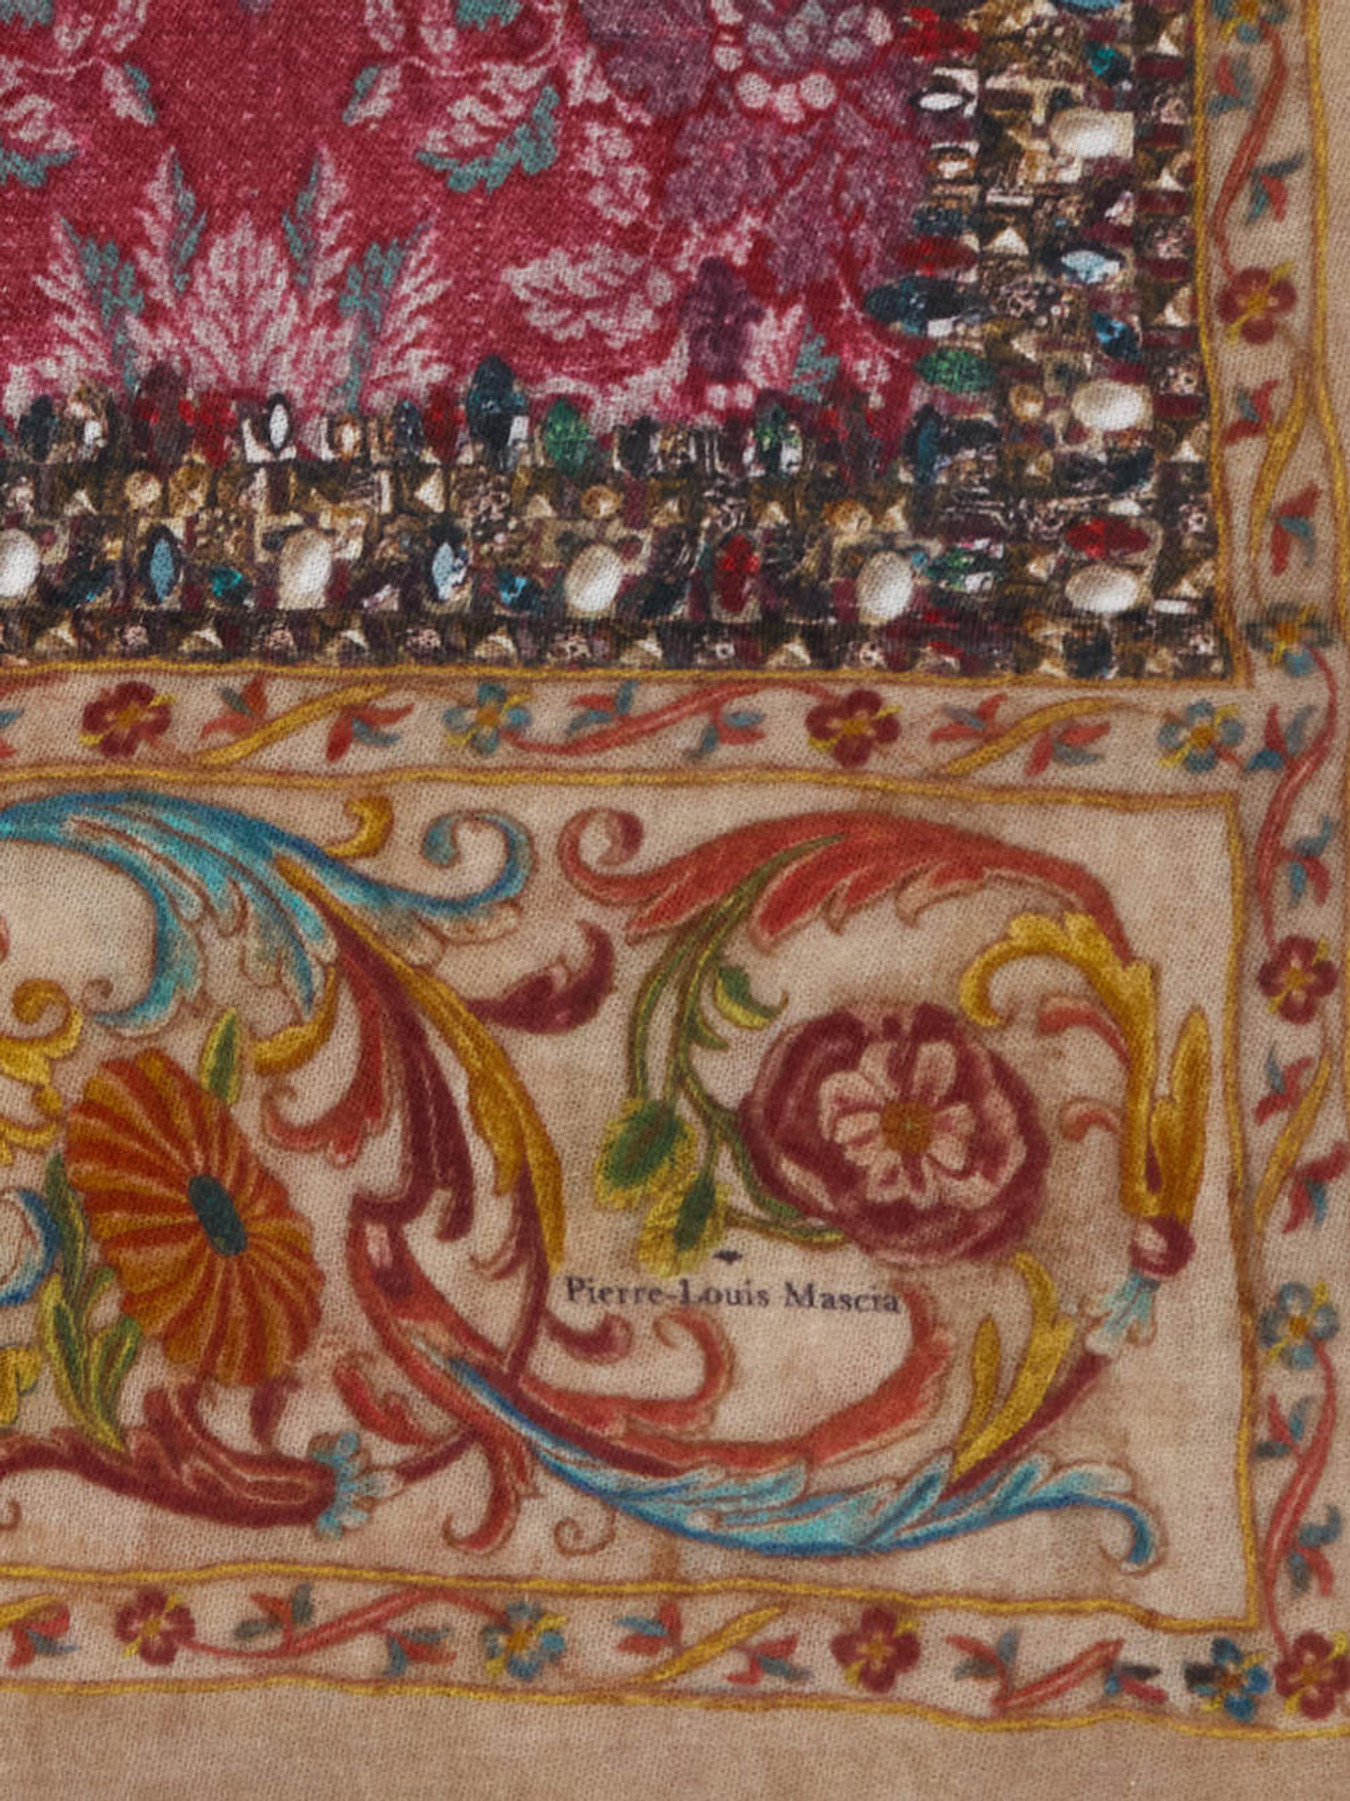 Pierre-Louis Mascia